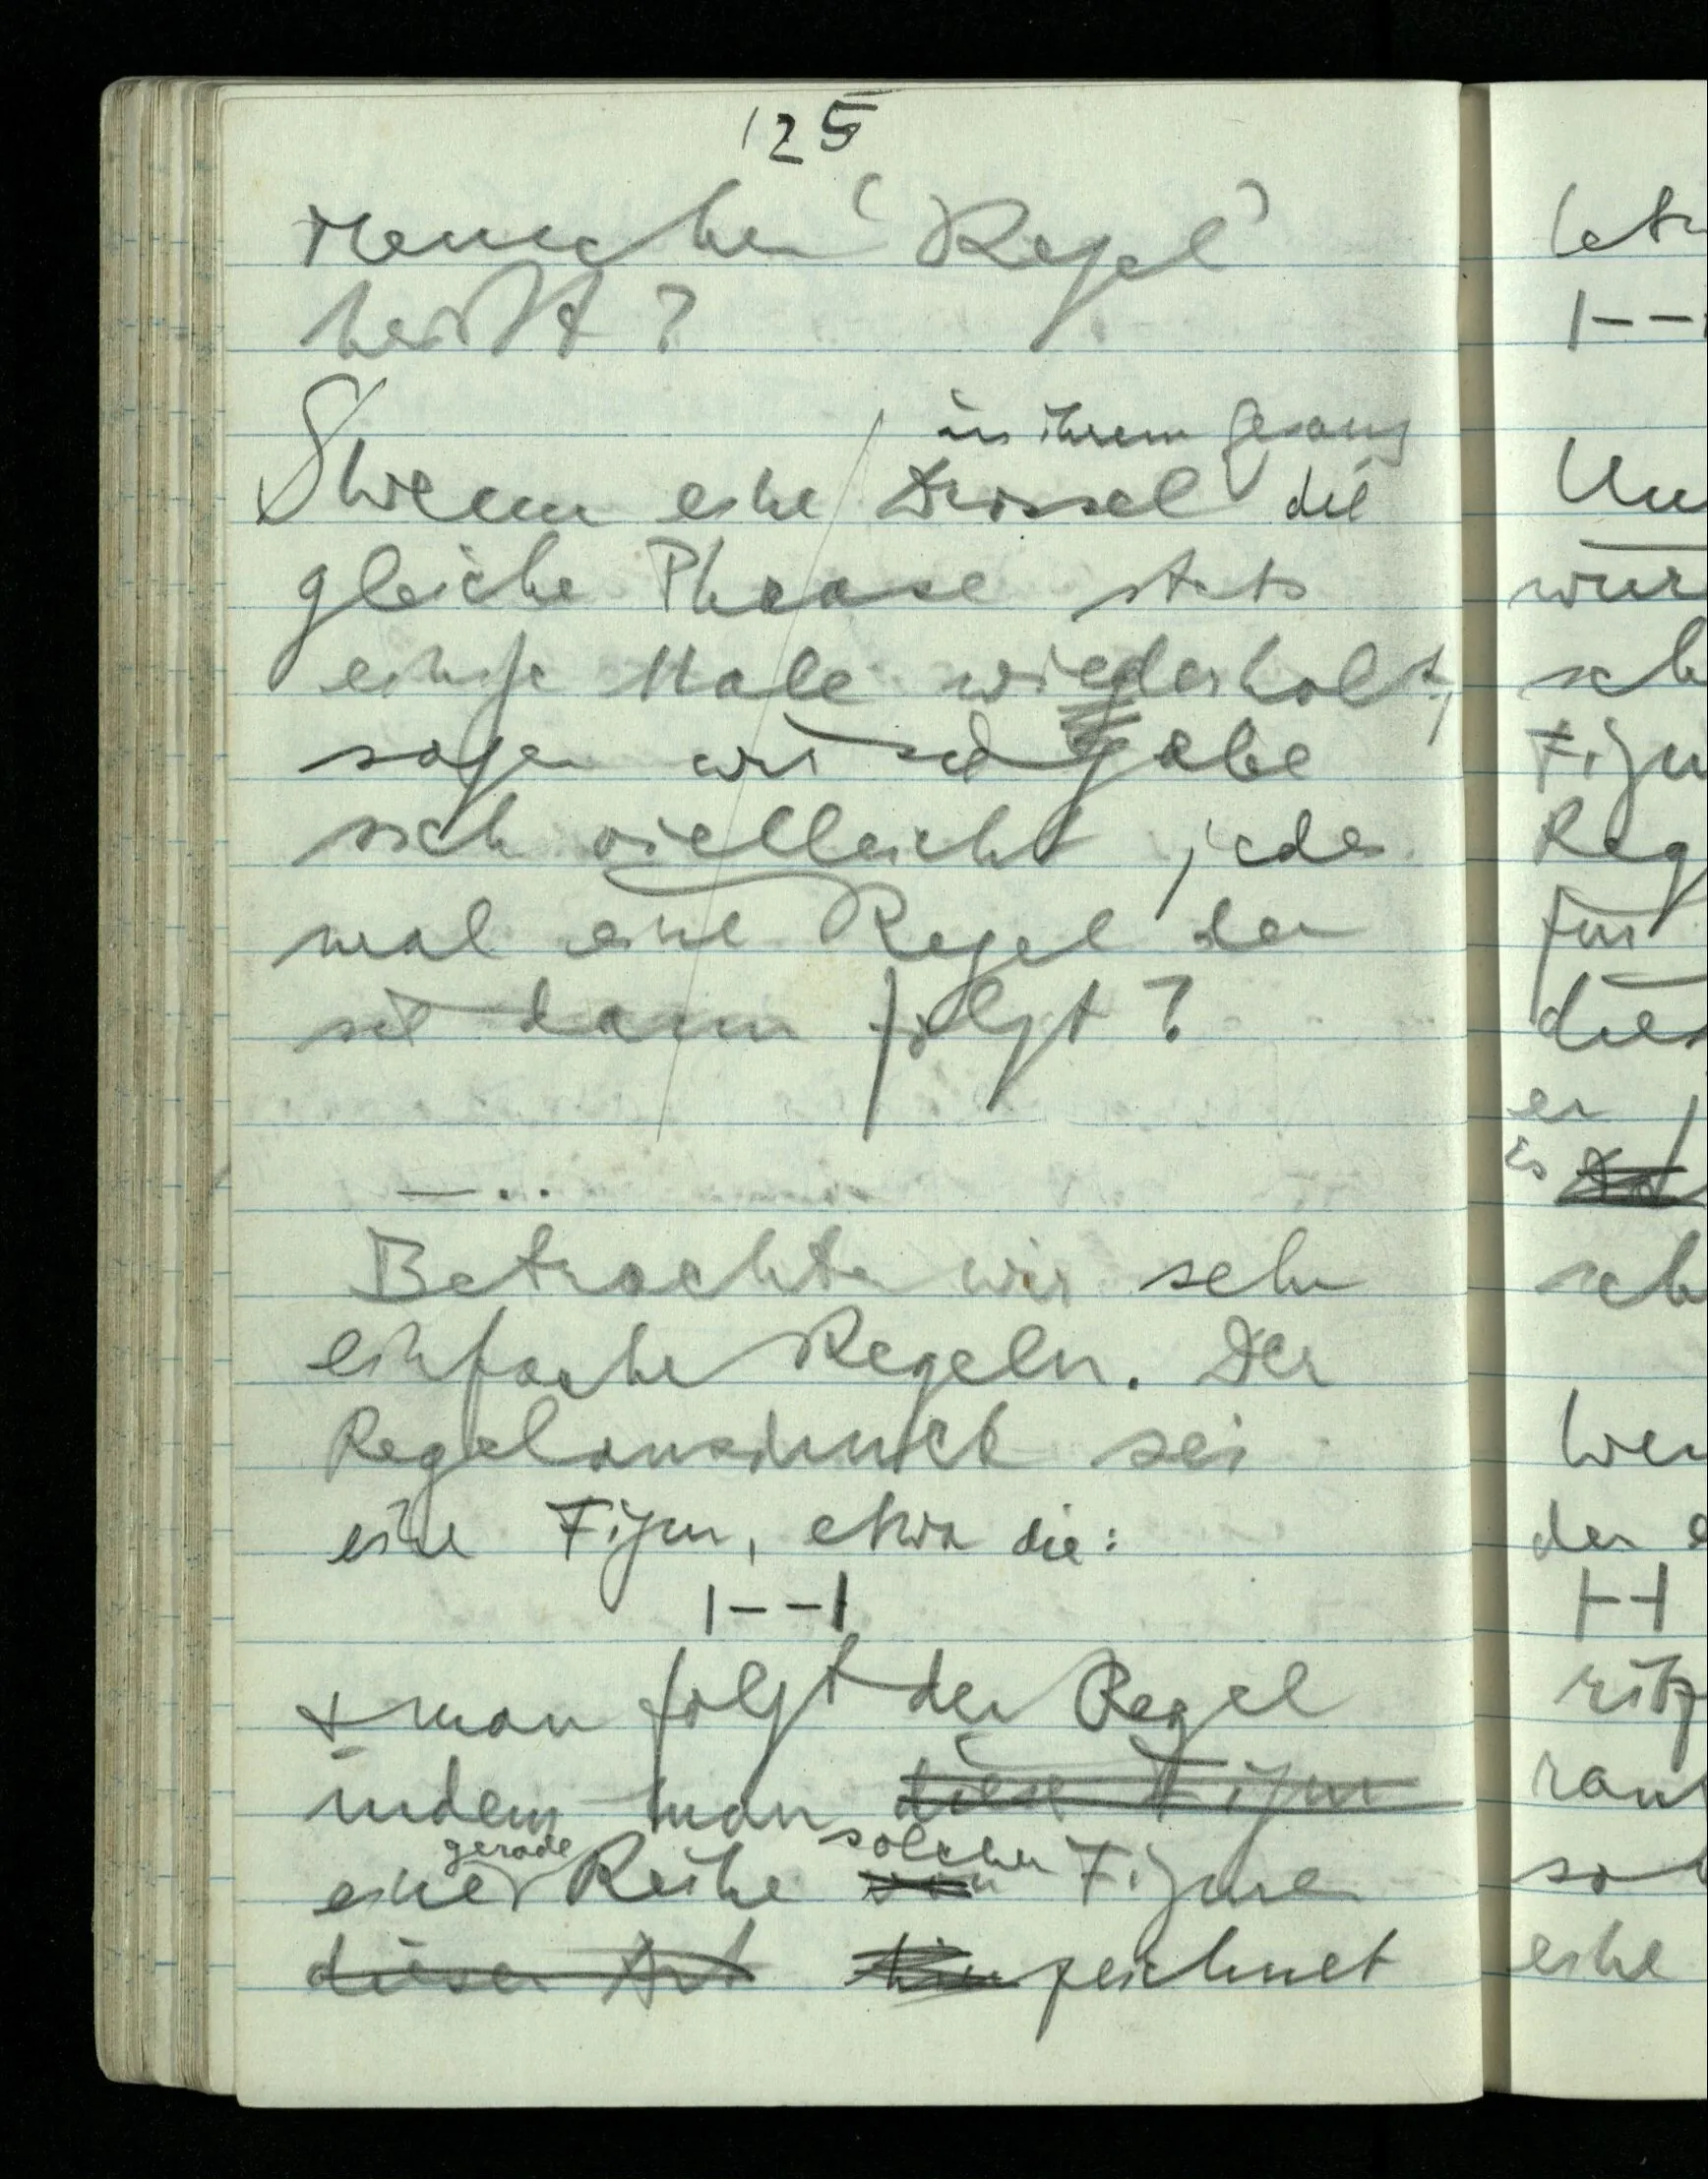 125
Menschen ‘Regel’
heißt?
S Wenn eine Drossel in ihrem Gesang die
gleiche Phrase stets
einige Male wiederholt,
sagen wir sie gebe
sich vielleicht jedes
mal eine Regel der
sie dann folgt?
— . .
Betrachten wir sehr
einfache Regeln. Der
Regelausdruck sei
eine Figur, etwa die:
|– –|
& man folgt der Regel
indem man diese Figur
eine gerade Reihe von solcher Figuren
dieser Art zeichnet
letz
|– –
Un
wür
sch
Figu
Reg
für
dies
er
es
sch
Wen
der e
|–|
ritz
rau
so
eine